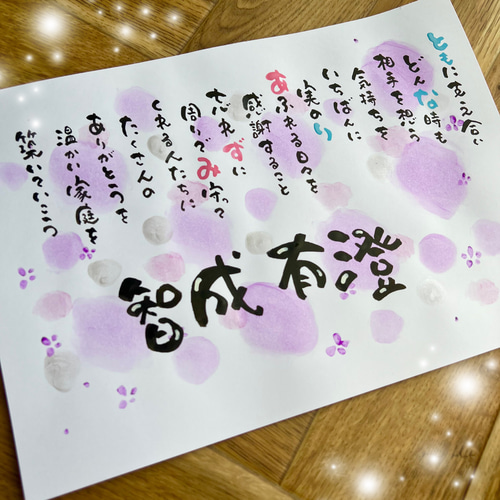 ともに支え合い
どんな時も
相手を想う
気持ちを
いちばんに
実のり
あふれる日々を
感謝すること
忘れずに
周いでみ守って
くれる人たちに
たくさんの
ありがとうを
温かい家庭を
築いていこう
澄有成智